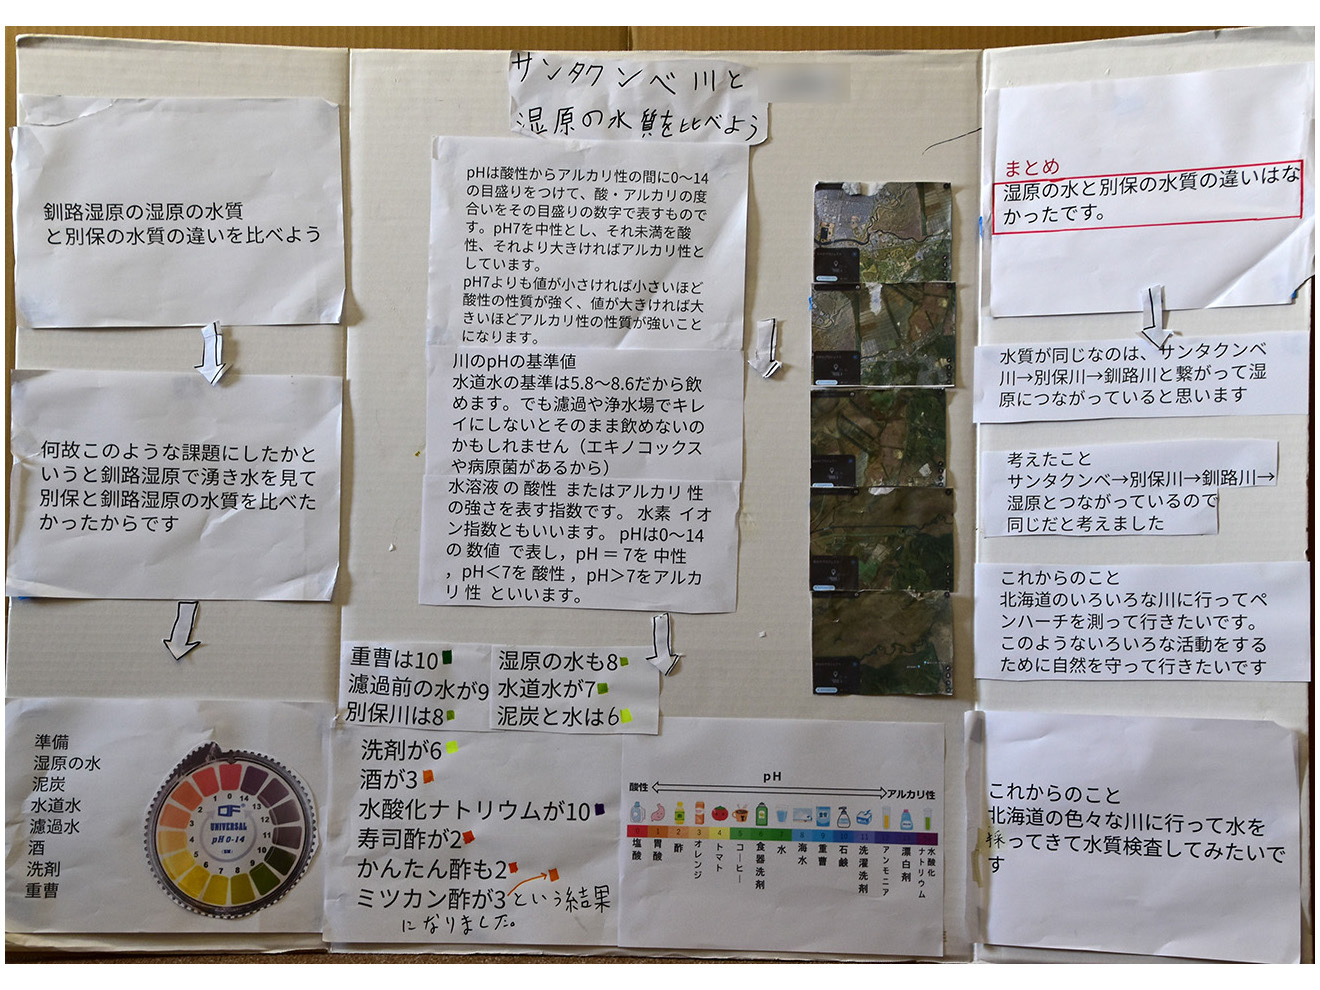 サンタクンベ川と
湿原の水質を比べよう
釧路湿原の湿原の水質
と別保の水質の違いを比べよう
何故このような課題にしたかと
いうと釧路湿原で湧き水を見て
別保と釧路湿原の水質を比べた
かったからです
準備
湿原の水
泥炭
水道水
濾過水
酒
洗剤
重曹
UNIVERSAL
pH 0-14
0
1
2
14
13
12
11
pHは酸性からアルカリ性の間に0〜14
の目盛りをつけて、酸・アルカリの度
合いをその目盛りの数字で表すもので
す。pH7を中性とし、それ未満を酸
性、それより大きければアルカリ性と
しています。
pH7よりも値が小さければ小さいほど
酸性の性質が強く、値が大きければ大
きいほどアルカリ性の性質が強いこと
になります。
川のpHの基準値
水道水の基準は5.8〜8.6だから飲
めます。でも濾過や浄水場でキレ
イにしないとそのまま飲めないの
かもしれません（エキノコックス
や病原菌があるから）
水溶液 の 酸性 またはアルカリ 性
の強さを表す指数です。 水素 イオ
ン指数ともいいます。 pHは0〜14
の 数値 で表し，pH ＝ 7を 中性
，pH＜7を 酸性，pH＞7をアルカ
リ 性 といいます。
重曹は10
濾過前の水が9
別保川は8
湿原の水も8
水道水が7
泥炭と水は6
洗剤が6
酒が3
水酸化ナトリウムが10
寿司酢が2
かんたん酢も2
ミツカン酢が3という結果
になりました。
pH
酸性
アルカリ性
0 1 2 3 4 5 6 7 8 9 10 11
塩酸
胃酸
酢
オレンジ
トマト
コーヒー
食器洗剤
水
海水
重曹
石鹸
洗濯洗剤
アンモニア
漂白剤
水酸化ナトリウム
まとめ
湿原の水と別保の水質の違いはな
かったです。
水質が同じなのは、サンタクンベ
川→別保川→釧路川と繋がって湿
原につながっていると思います
考えたこと
サンタクンベ→別保川→釧路川→
湿原とつながっているので
同じだと考えました
これからのこと
北海道のいろいろな川に行ってペ
ンハーチを測って行きたいです。
このようないろいろな活動をする
ために自然を守って行きたいです
これからのこと
北海道の色々な川に行って水を
採ってきて水質検査してみたいで
す